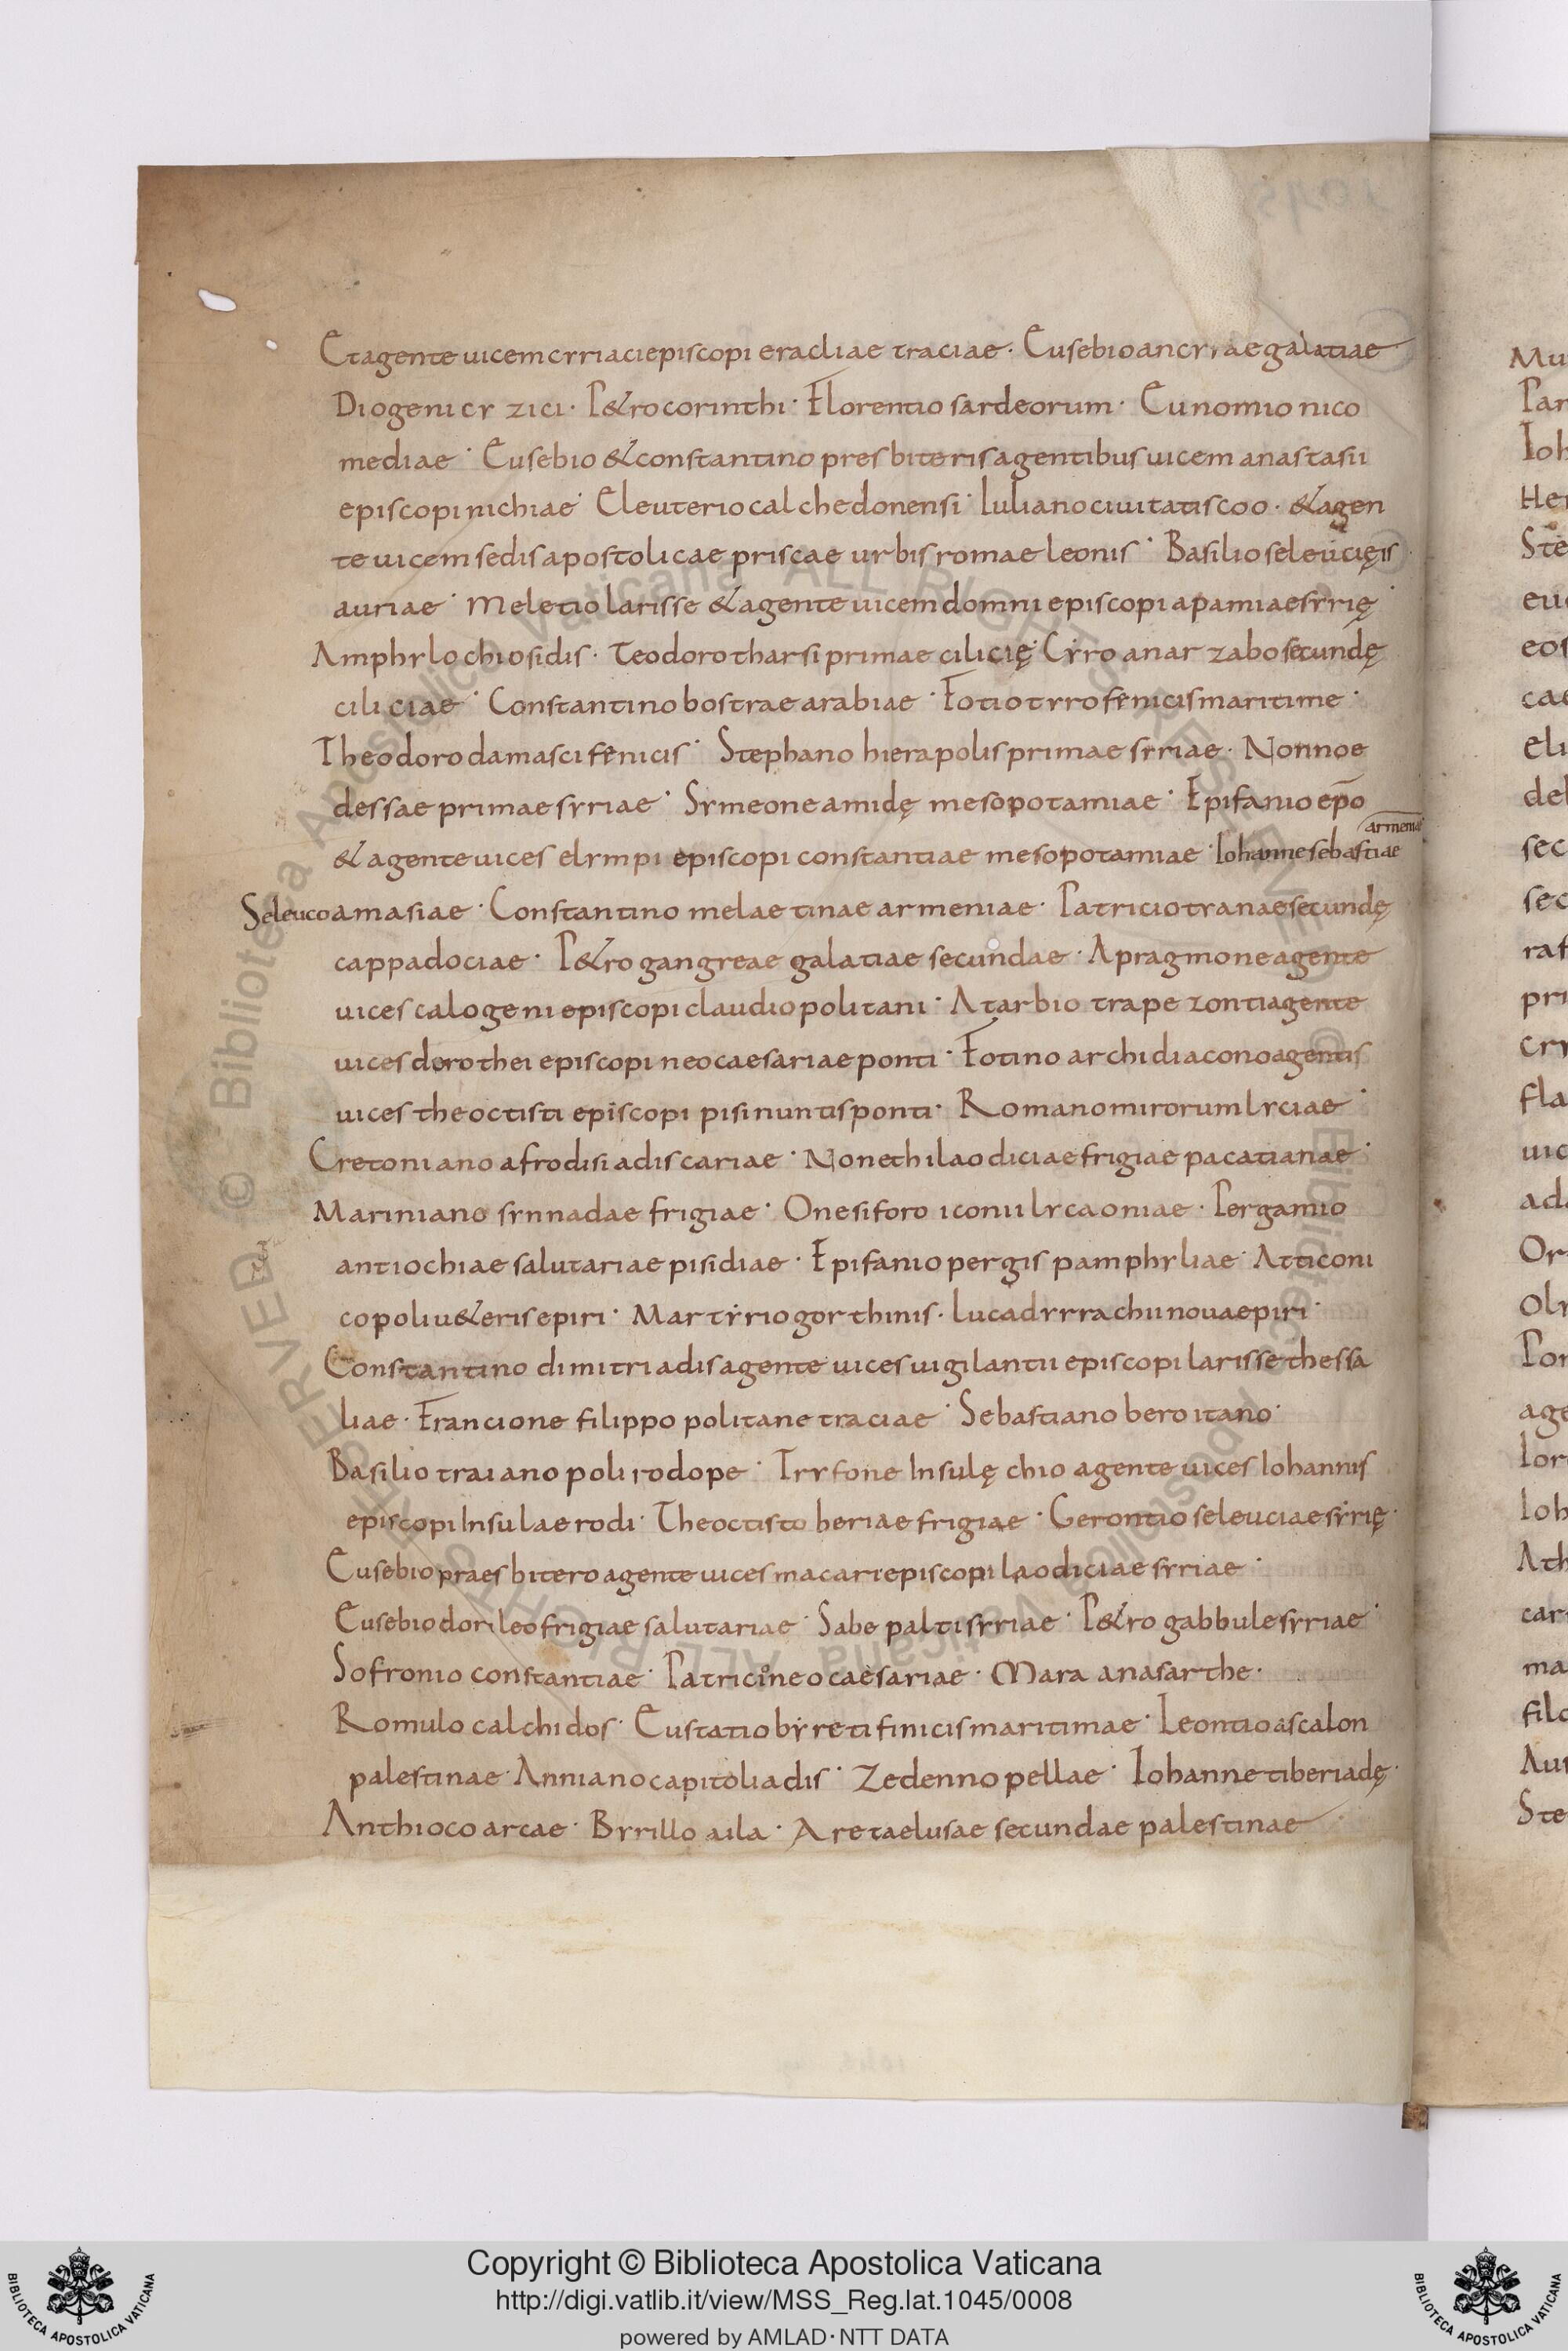 Et agente uicem cyriaci episcopi eracliae traciae · Eusebio ancyrae galatiae
Diogeni cyzici · P&ro corinthi · Florentio sardeorum · Eunomio nico
mediae · Eusebio & constantino presbiteris agentibus uicem anastasii
episcopi nichiae · Eleuterio calchedonensi · Iuliano ciuitatis coo · & agen
te uicem sedis apostolicae priscae urbis romae leonis · Basilio seleucię is
auriae · Meletio larisse & agente uicem domni episcopi apamiae syrię ·
Amphylochio sidis · Teodoro tharsi primae cilicię · Cyro anarzabo secundę
ciliciae · Constantino bostrae arabiae · Fotio tyro fenicis maritime ·
Theodoro damasci fenicis · Stephano hierapolis primae syriae · Nonno e
dessae primae syriae · Symeone amidę mesopotamiae · Epifanio ep̄o
& agente uices elympi episcopi constantiae mesopotamiae · Iohanne sebastiae armeniae
Seleuco amasiae · Constantino melaetinae armeniae · Patricio tyanae secundę
cappadociae · P&ro gangreae galatiae secundae · Apragmone agente
uices calogeni episcopi claudiopolitani · Atarbio trapezonti agente
uices dorothei episcopi neocaesariae ponti · Fotino archidiacono agentis
uices theoctisti episcopi pisinuntis ponti · Romano mirorum lyciae ·
Cretoniano afrodisiadis cariae · Nonethi laodiciae frigiae pacatianae ·
Mariniano synnadae frigiae · Onesiforo iconii lycaoniae · Pergamio
antiochiae salutariae pisidiae · Epifanio pergis pamphyliae · Attico ni
copoli u&eris epiri · Martyrio gorthinis · Luca dyrrachii noua epiri ·
Constantino dimitriadis agente uices uigilantii episcopi larisse thessa
liae · Francione filippopolitane traciae · Sebastiano beroitano ·
Basilio traianopoli rodope · Tryfone Insulę chio agente uices Iohannis
episcopi Insulae rodi · Theoctisto beriae frigiae · Gerontio seleuciae syrię ·
Eusebio praesbitero agente uices macari episcopi laodiciae syriae ·
Eusebio dorileo frigiae salutariae · Sabe palti syriae · P&ro gabbule syriae ·
Sofronio constantiae · Patricio neocaesariae · Mara anasarthe ·
Romulo calchidos · Eustatio byreti finicis maritimae · Leontio ascalon
palestinae · Anniano capitoliadis · Zedenno pellae · Iohanne tiberiadę ·
Anthioco arcae · Byrillo aila · Areta elusae secundae palestinae
Copyright © Biblioteca Apostolica Vaticana
http://digi.vatlib.it/view/MSS_Reg.lat.1045/0008
powered by AMLAD · NTT DATA